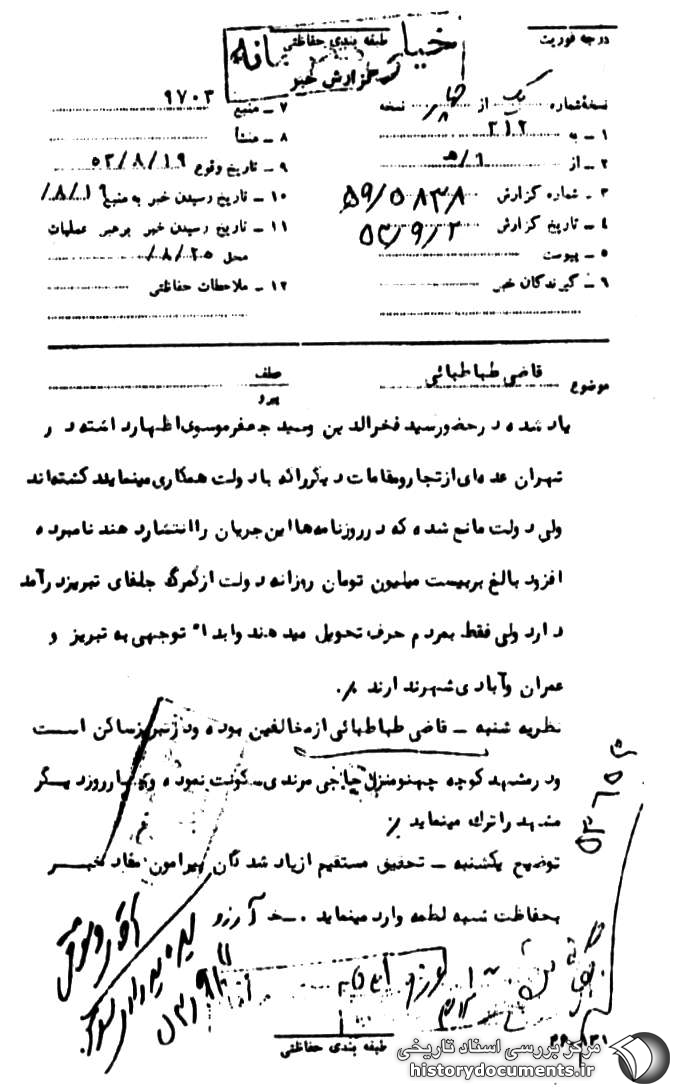 طبقه بندی حفاظتی
گزارش خبر
درجه فوریت
نسخه شماره یک از چهار نسخه
۱ – به ۳۱۲
۲ – از ۹/هـ
۳ - شماره گزارش ۵۹/۵۸۳۸
۴ – تاریخ گزارش ۵۳/۹/۲
۵ – پیوست
۶ – گیرندگان خبر
۷ – منبع ۹۷۰۳
۸ – منشأ
۹ – تاریخ وقوع ۵۳/۸/۱۹
۱۰ – تاریخ رسیدن خبر به منبع ۸/۱۹/
۱۱ – تاریخ رسیدن خبر برهبر عملیات
محل ۸/۲۵/
۱۲ – ملاحظات حفاظتی
موضوع قاضی طباطبائی
عطف
پیرو
یاد شده در حضور سید فخرالدین وسید جعفر موسوی اظهار داشته در
تهران عده ای از تجار ومقامات دیگر رائه با دولت همکاری مینمایند کشته اند
ولی دولت مانع شده که در روزنامه ها این جریان را انتشار دهند نامبرده
افزود بالغ بر بیست میلیون تومان روزانه دولت از گمرک جلفای تبریز درآمد
دارد ولی فقط بمردم حرف تحویل میدهند وابداً توجهی به تبریز و
عمران وآبادی شهر ندارند ٪.
نظریه شنبه – قاضی طباطبائی از مخالفین بوده ودر تبریز ساکن است
ودر مشهد کوچه چهنو منزل حاجی مرندی سکونت نموده و چهار روز دیگر
مشهد را ترک مینماید ٪
توضیح یکشنبه – تحقیق مستقیم از یاد شدگان پیرامون مفاد خبر
بحفاظت شنبه لطمه وارد مینماید . آرزو
طبقه بندی حفاظتی
مرکز بررسی اسناد تاریخی
historydocuments.ir